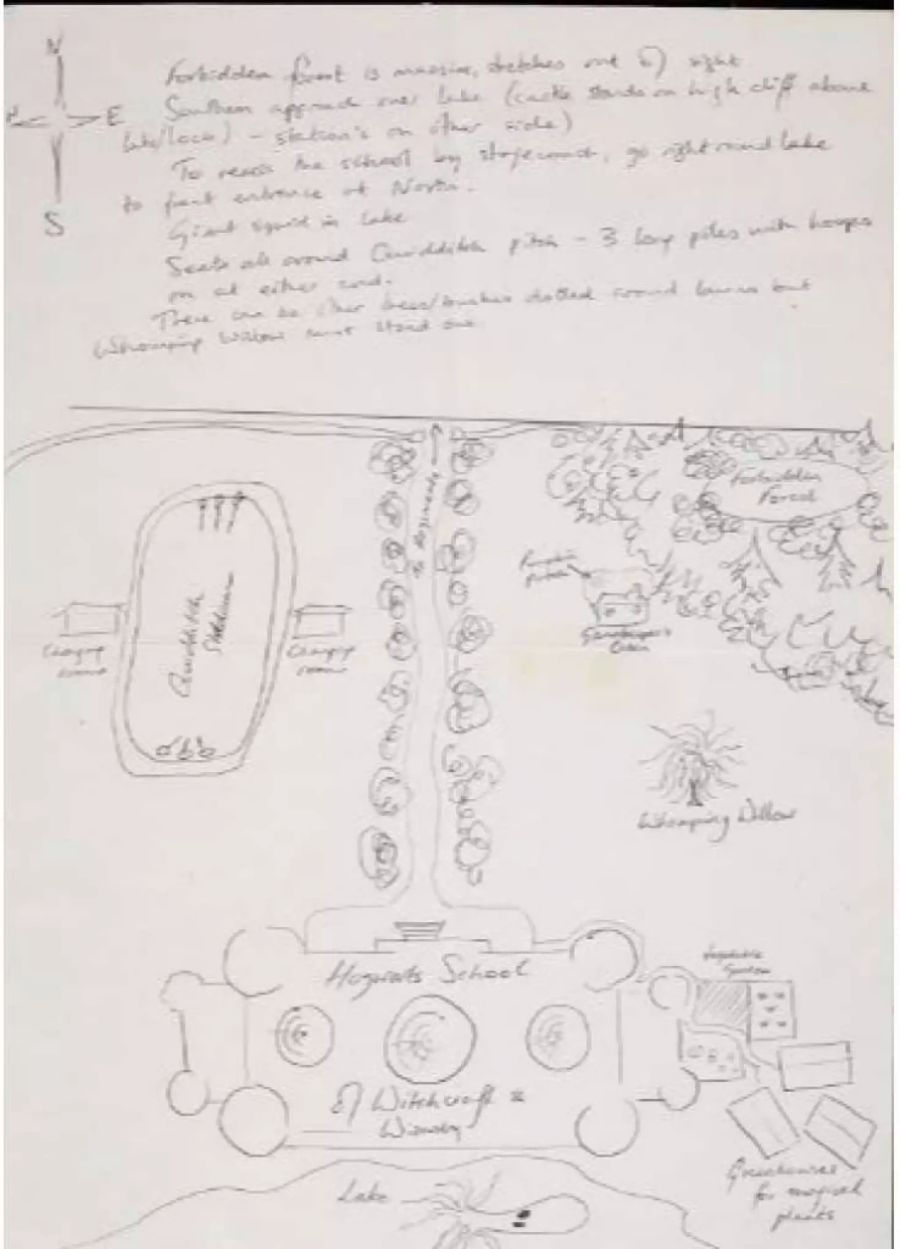 N
E
S
Forbidden forest is massive, stretches out of sight
Southern approach over lake (castle stands on high cliff above
lake/loch) - station's on other side)
To reach the school by stagecoach, go right round lake
to front entrance at North.
Giant squid in lake
Seats all around Quidditch pitch - 3 long poles with hoops
on at either end.
There can be other trees/bushes dotted around lawns but
Whomping Willow must stand out
Forbidden
Forest
To Hogsmeade
Pumpkin
patch
Gamekeeper's
Cabin
Quidditch
Stadium
Changing
rooms
Changing
rooms
Whomping Willow
Hogwarts School
of Witchcraft &
Wizardry
Vegetable
Garden
Greenhouses
for magical
plants
Lake